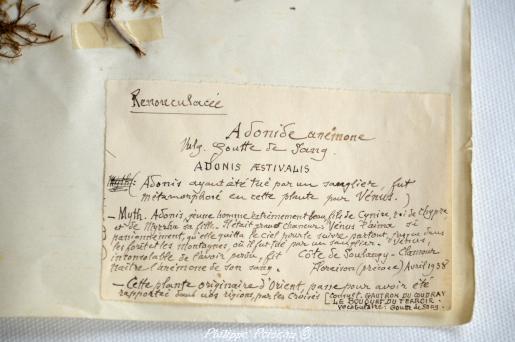 Renonculacée
Adonide anémone
Vulg. Goutte de Sang.
ADONIS ÆSTIVALIS
Adonis ayant été tué par un sanglier, fut
métamorphosé en cette plante par Vénus.)
— Myth. Adonis, jeune homme extrêmement beau fils de Cynire, roi de Chypre
et de Myrrha sa fille. Il était grand chasseur. Vénus l'aima si
passionnément, qu'elle quitta le ciel pour le suivre partout, jusque dans
les forêts et les montagnes, où il fut tué par un sanglier. Vénus,
inconsolable de l'avoir perdu, fit Côte de Soulangy - Clamour
naître l'anémone de son sang. Floraison (précoce) Avril 1938
— Cette plante originaire d'Orient, passe pour avoir été
rapportée dans nos régions, par les Croisés [Consult. GAUTRON DU COUDRAY
LE BOUQUET DU TERROIR.
Vocabulaire: Goutte de Sang.
Philippe Poiseau ©